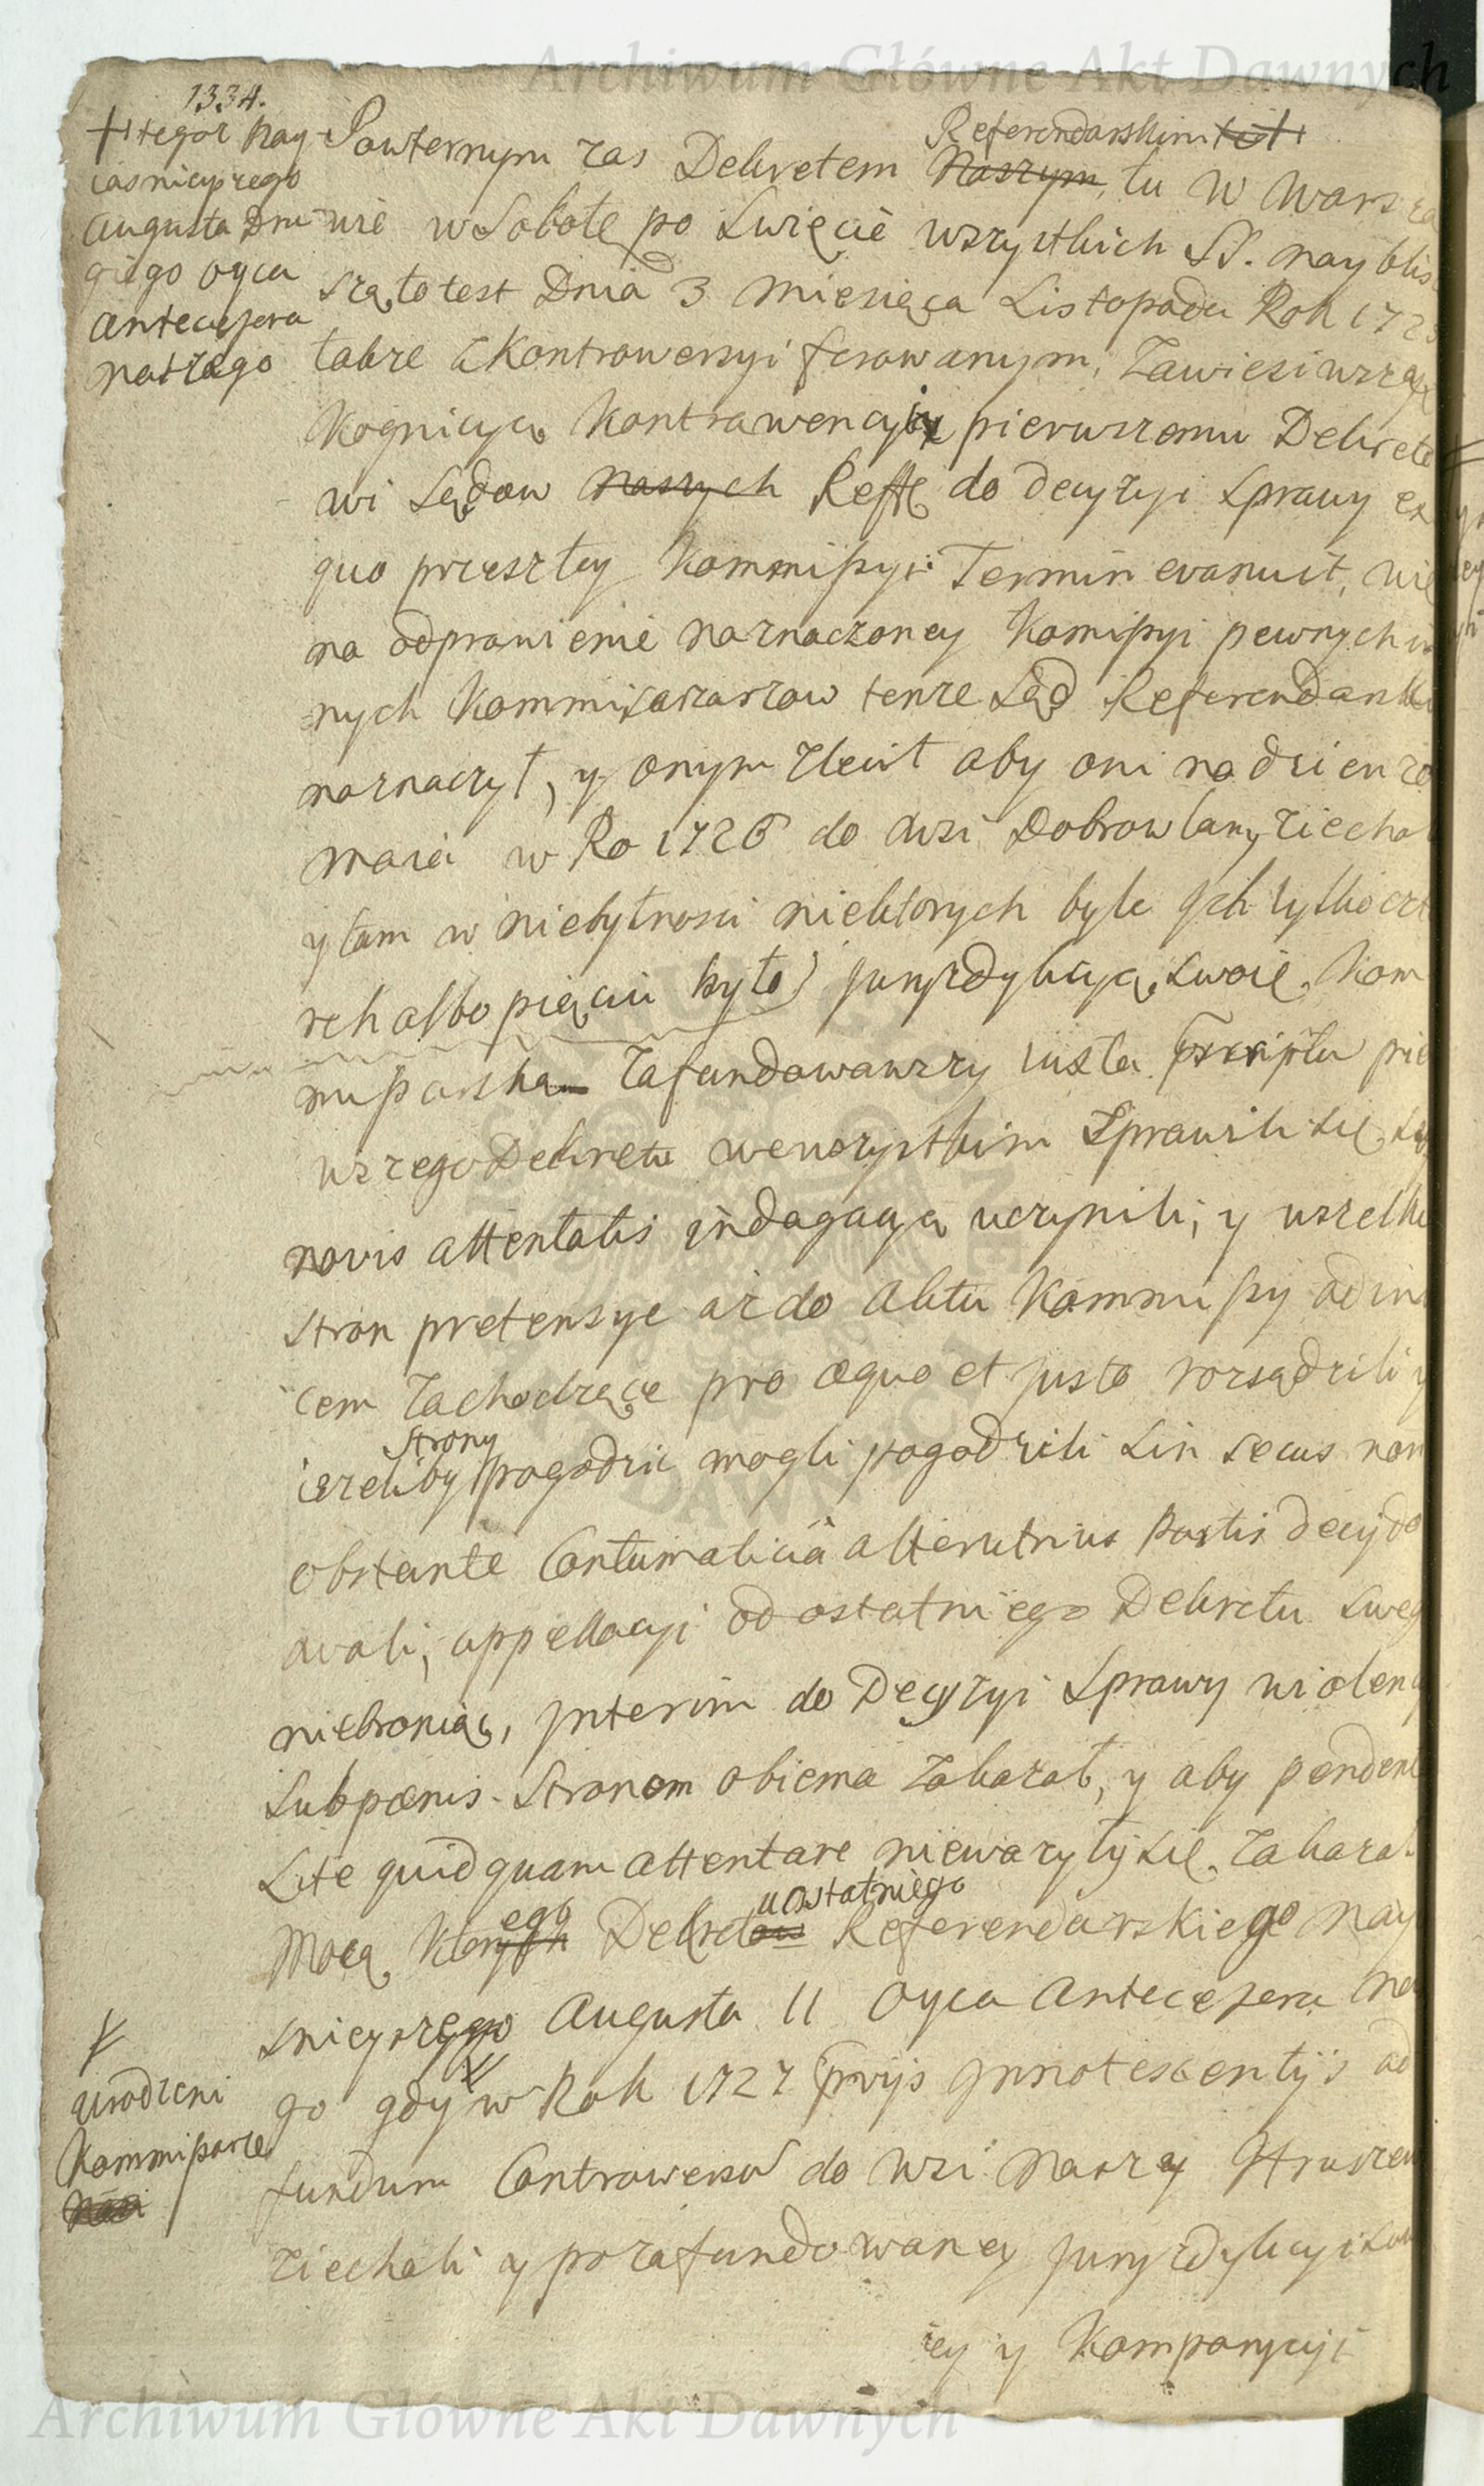 Archiwum Główne Akt Dawnych
1334.
+ tegoż nay
iasnieyszego
Augusta Dru
giego oyca
Antecessora
naszego
Powternym zas Dekretem Naszym, Referendarskim tu w Warsza
wie w Sobotę po Swięcie wszystkich SS. nayblis
szą to iest Dnia 3 Miesiąca Listopada Rok 172
takze z Kontrowersyi ferowanym, Zawiesiwszy
Kognicyą Kontrawencyi pierwszemu Dekreto
wi Sądow Naszych Reffę do decyzyi Sprawy ex
quo przeszłey Kommissyi Termin evanuit, wię
na odprawienie naznaczoney Komissyi pewnych in
nych Kommissarzow tenze Sąd Referendarski
naznaczył, y onym zlecił aby oni na dzien 20
Maia w Ro 1726 do wsi Dobrowlany ziechali
y tam w niebytnosci niektorych byle ych tylko czte
rech albo pięciu było jurysdykcyą swoię Kom
missarską zafundowawszy iuxta praescriptum pie
wszego Dekretu wewszystkim Sprawili się, su
novis attentatis indagacyą uczynili, y wszelkie
stron pretensye aż do Aktu Kommissyi ad in
cem zachodzące pro aequo et justo rozsądzili y
iezeliby Strony pogodzic mogli pogodzili sin secus non
obstante Contumaticia alterutrius Partis decydo
wali, appellacyi od ostatniego Dekretu Sweg
niebroniąc, Interim do Decyzyi Sprawy violency
Subpoenis Stronom obiema zakazał, y aby pendent
Lite quidquam attentare niewazyły się, zakazał.
Mocą Ktorego Dekretu ostatniego Referendarskiego Nay
snieyszego Augusta II Oyca Antecessora Na
go gdy w Rok 1727 praevijs Innotescentijs ad
fundum Controversum do wsi Naszey Hruszew
ziechali y po zafundowaney Jurysdykcyi Swo
iey y Komparycyi
urodzeni
Kommissarze
Nasi
Archiwum Główne Akt Dawnych